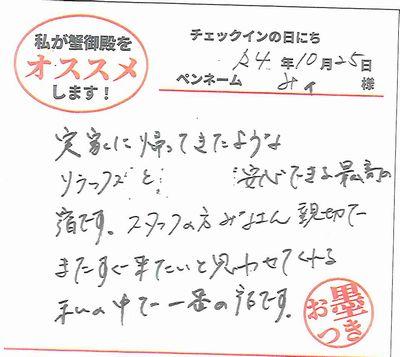 私が蟹御殿を
オススメ
します！
チェックインの日にち
R4年10月25日
ペンネーム みィ 様
実家に帰ってきたような
リラックスと 安心できる最高の
宿です。スタッフの方みなさん親切で
またすぐ来たいと思わせてくれる
私の中で一番の宿です。
お墨つき